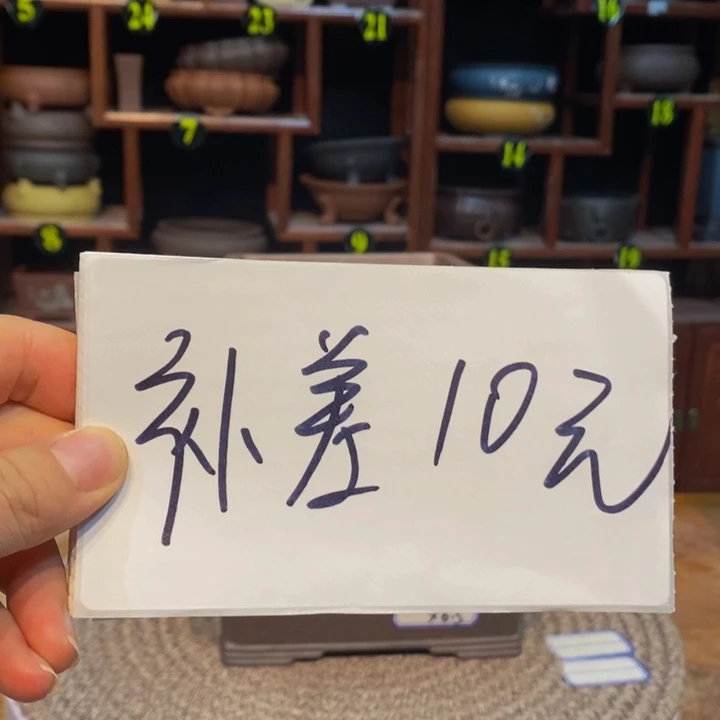 5
24
23
21
16
7
14
18
8
9
15
19
补差10元